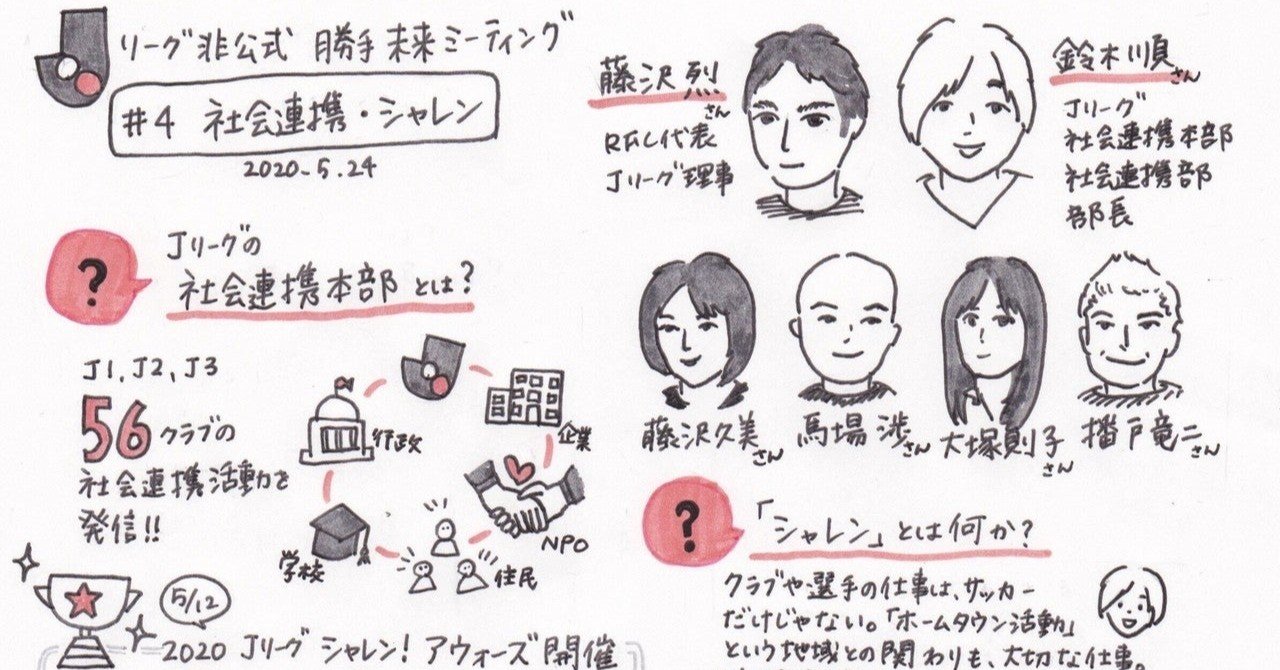 リーグ非公式 勝手未来ミーティング
#4 社会連携・シャレン
2020.5.24
藤沢烈さん
RFC代表
Jリーグ理事
鈴木順さん
Jリーグ
社会連携本部
社会連携部
部長
藤沢久美さん
馬場渉さん
大塚則子さん
播戸竜二さん
?
Jリーグの
社会連携本部とは?
J1, J2, J3
56クラブの
社会連携活動を
発信!!
行政
企業
NPO
住民
学校
5/12
2020 Jリーグ シャレン! アウォーズ開催
?
「シャレン」とは何か?
クラブや選手の仕事は、サッカー
だけじゃない。「ホームタウン活動」
という地域との関わりも、大切な仕事。